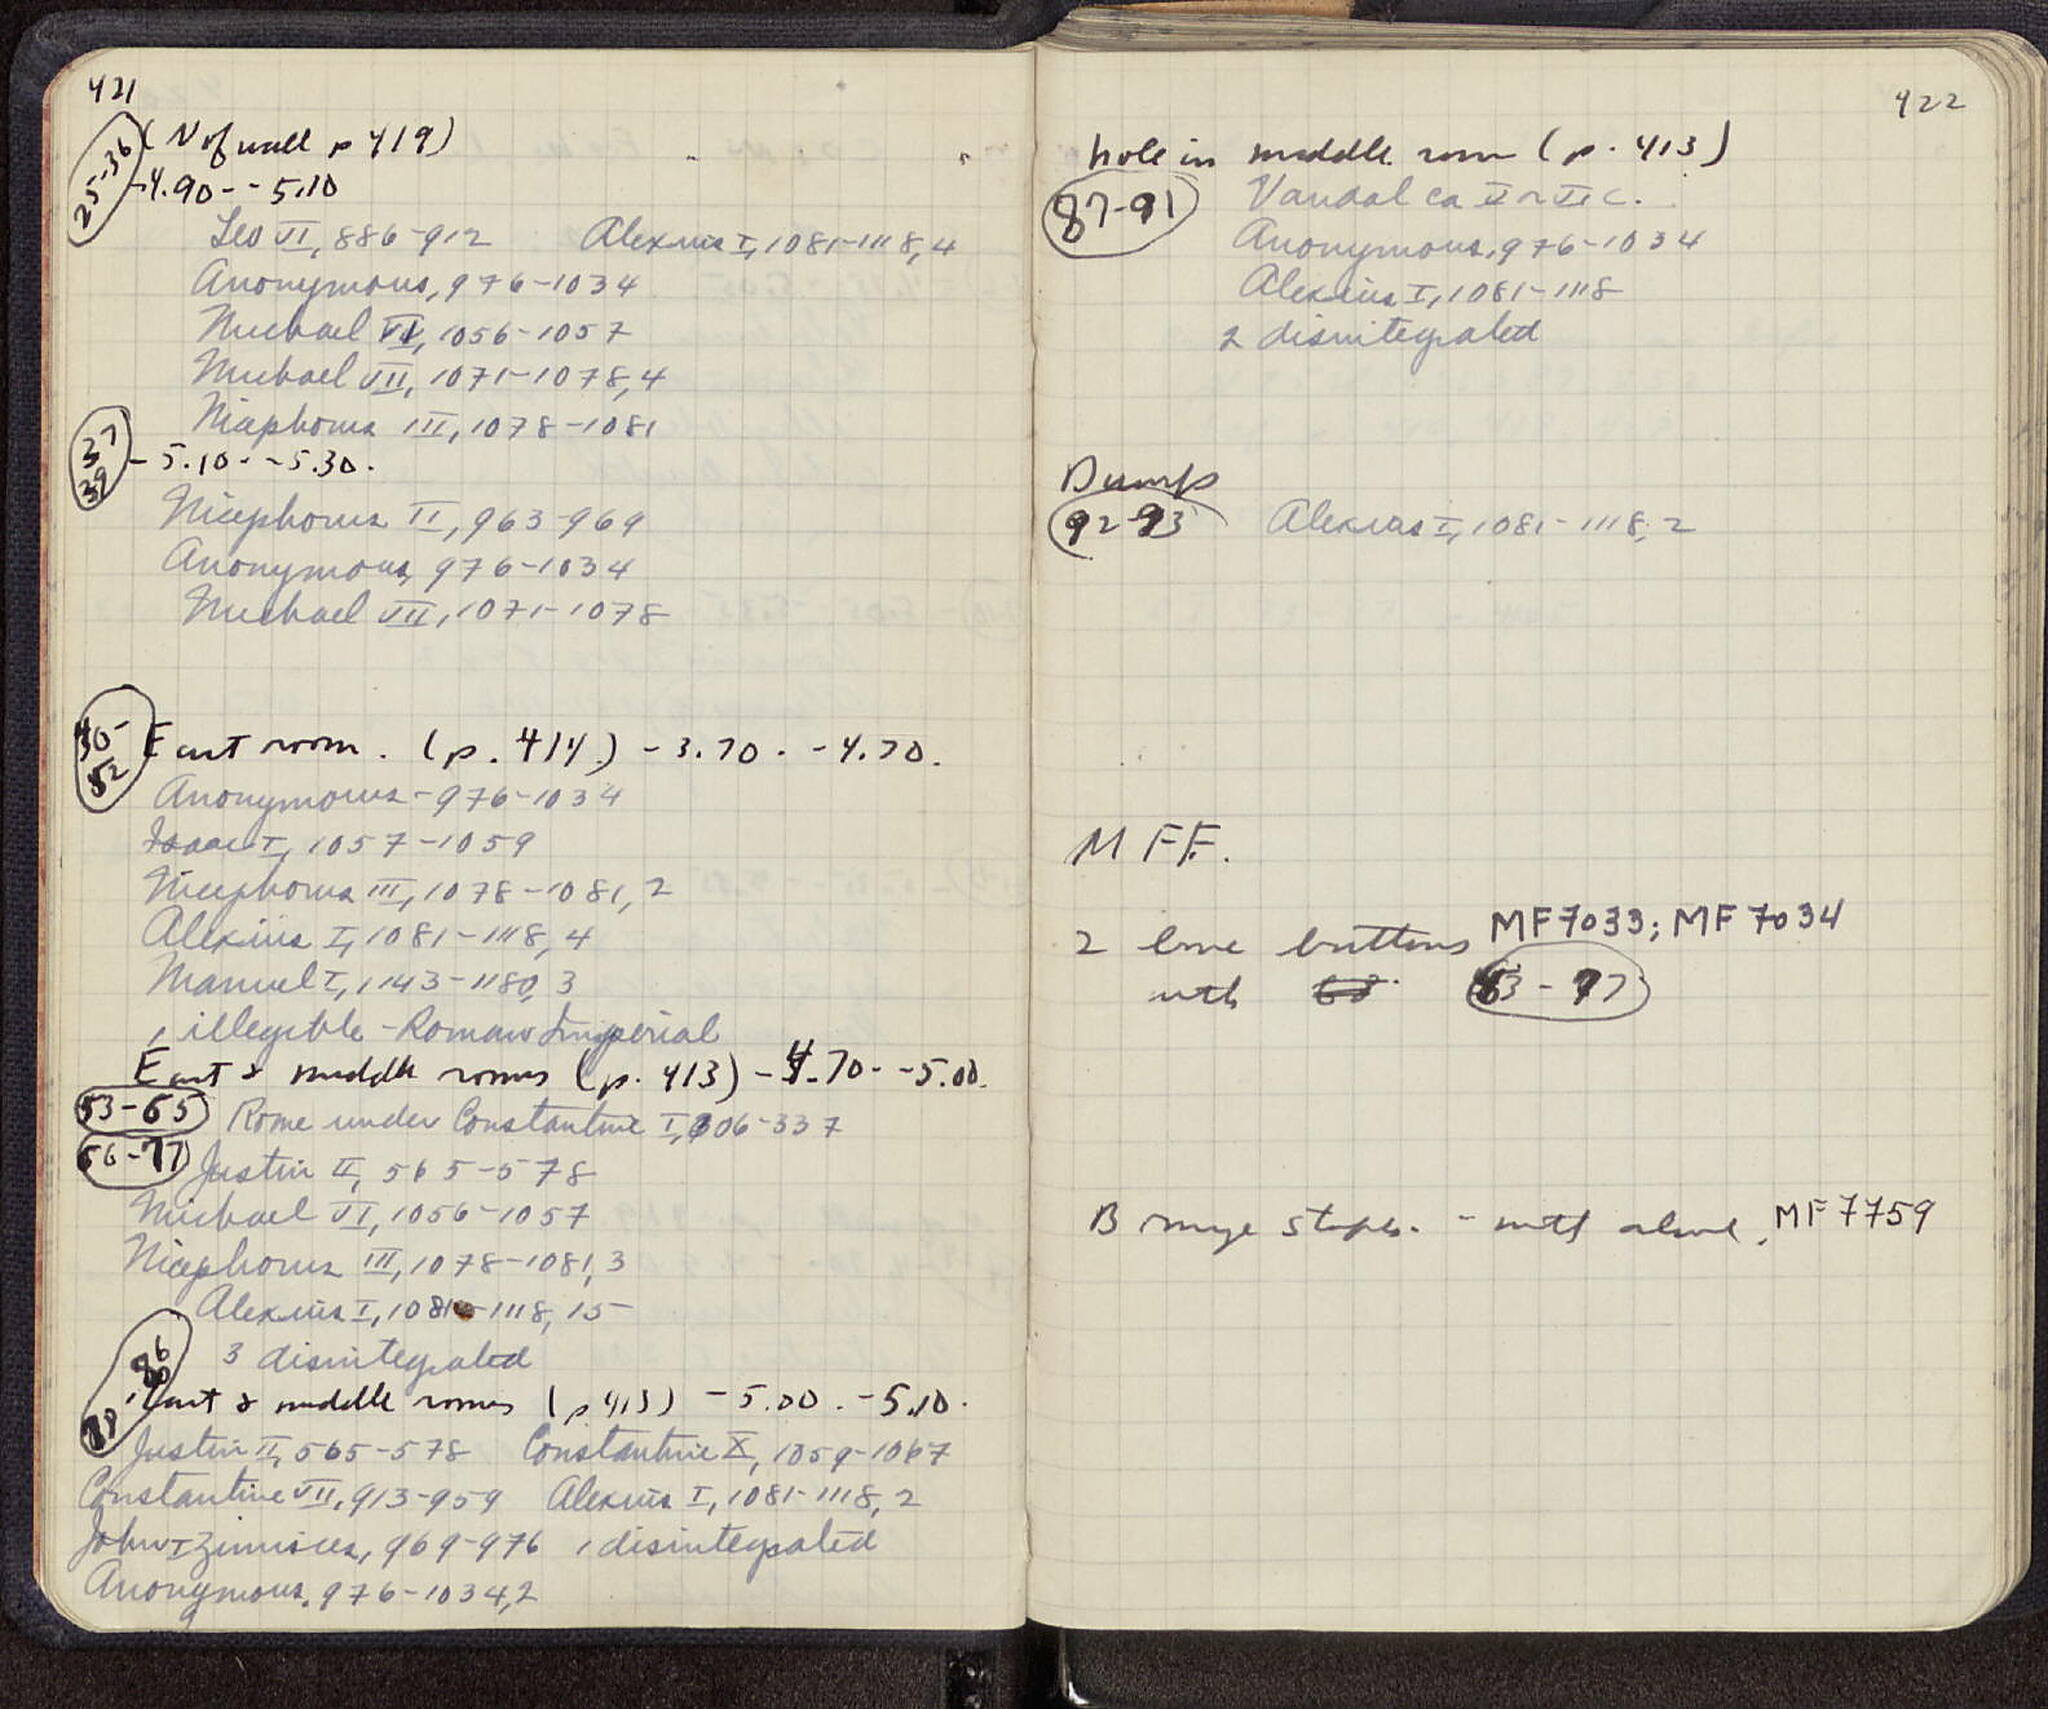 421
25-36 (N of wall p 419)
-4.90 - -5.10
Leo VI, 886-912 Alexius I, 1081-1118, 4
Anonymous, 976-1034
Michael VI, 1056-1057
Michael VII, 1071-1078, 4
Nicephorus III, 1078-1081
37 39 - 5.10 - -5.30.
Nicephorus II, 963-969
Anonymous, 976-1034
Michael VII, 1071-1078
40-52 East room. (p. 414) - 3.70 - - 4.70.
Anonymous - 976-1034
Isaac I, 1057-1059
Nicephorus III, 1078-1081, 2
Alexius I, 1081-1118, 4
Manuel I, 1143-1180, 3
1 illegible - Roman Imperial
East & middle rooms (p. 413) - 4.70 - -5.00.
53-65 Rome under Constantine I, 306-337
66-77 Justin II, 565-578
Michael VI, 1056-1057
Nicephorus III, 1078-1081, 3
Alexius I, 1081-1118, 15
3 disintegrated
86 East & middle rooms (p 413) - 5.00 - -5.10.
Justin II, 565-578 Constantine X, 1059-1067
Constantine VII, 913-959 Alexius I, 1081-1118, 2
John I Zimisces, 969-976 1 disintegrated
Anonymous, 976-1034, 2
422
hole in middle room (p. 413)
87-91 Vandal ca V or VI c.
Anonymous, 976-1034
Alexius I, 1081-1118
2 disintegrated
Dump
92-93 Alexius I, 1081-1118, 2
M FF.
2 bone buttons MF7033; MF7034
with 53-77
Bronze - with above, MF7759